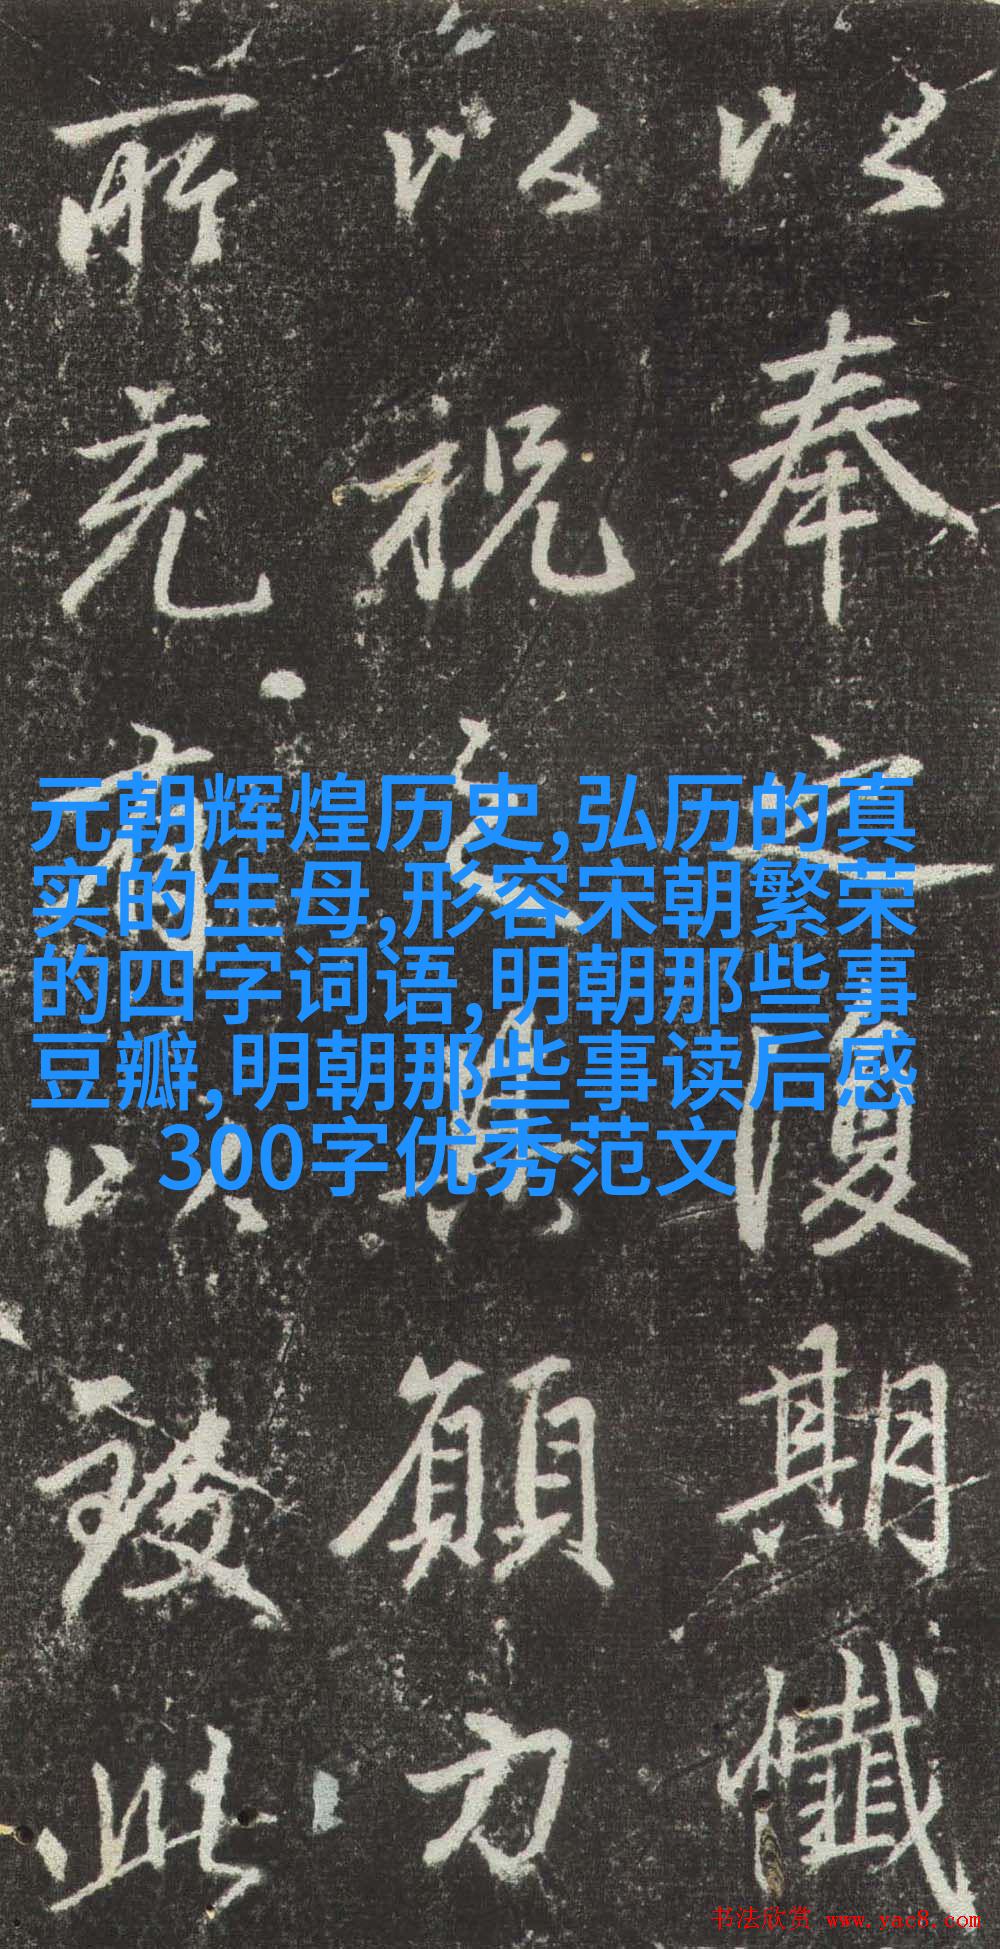 以奉之復期懺
以祝願力
所有以致此
元朝辉煌历史,弘历的真
实的生母,形容宋朝繁荣
的四字词语,明朝那些事
豆瓣,明朝那些事读后感
300字优秀范文
书法欣赏 www.yac8.com